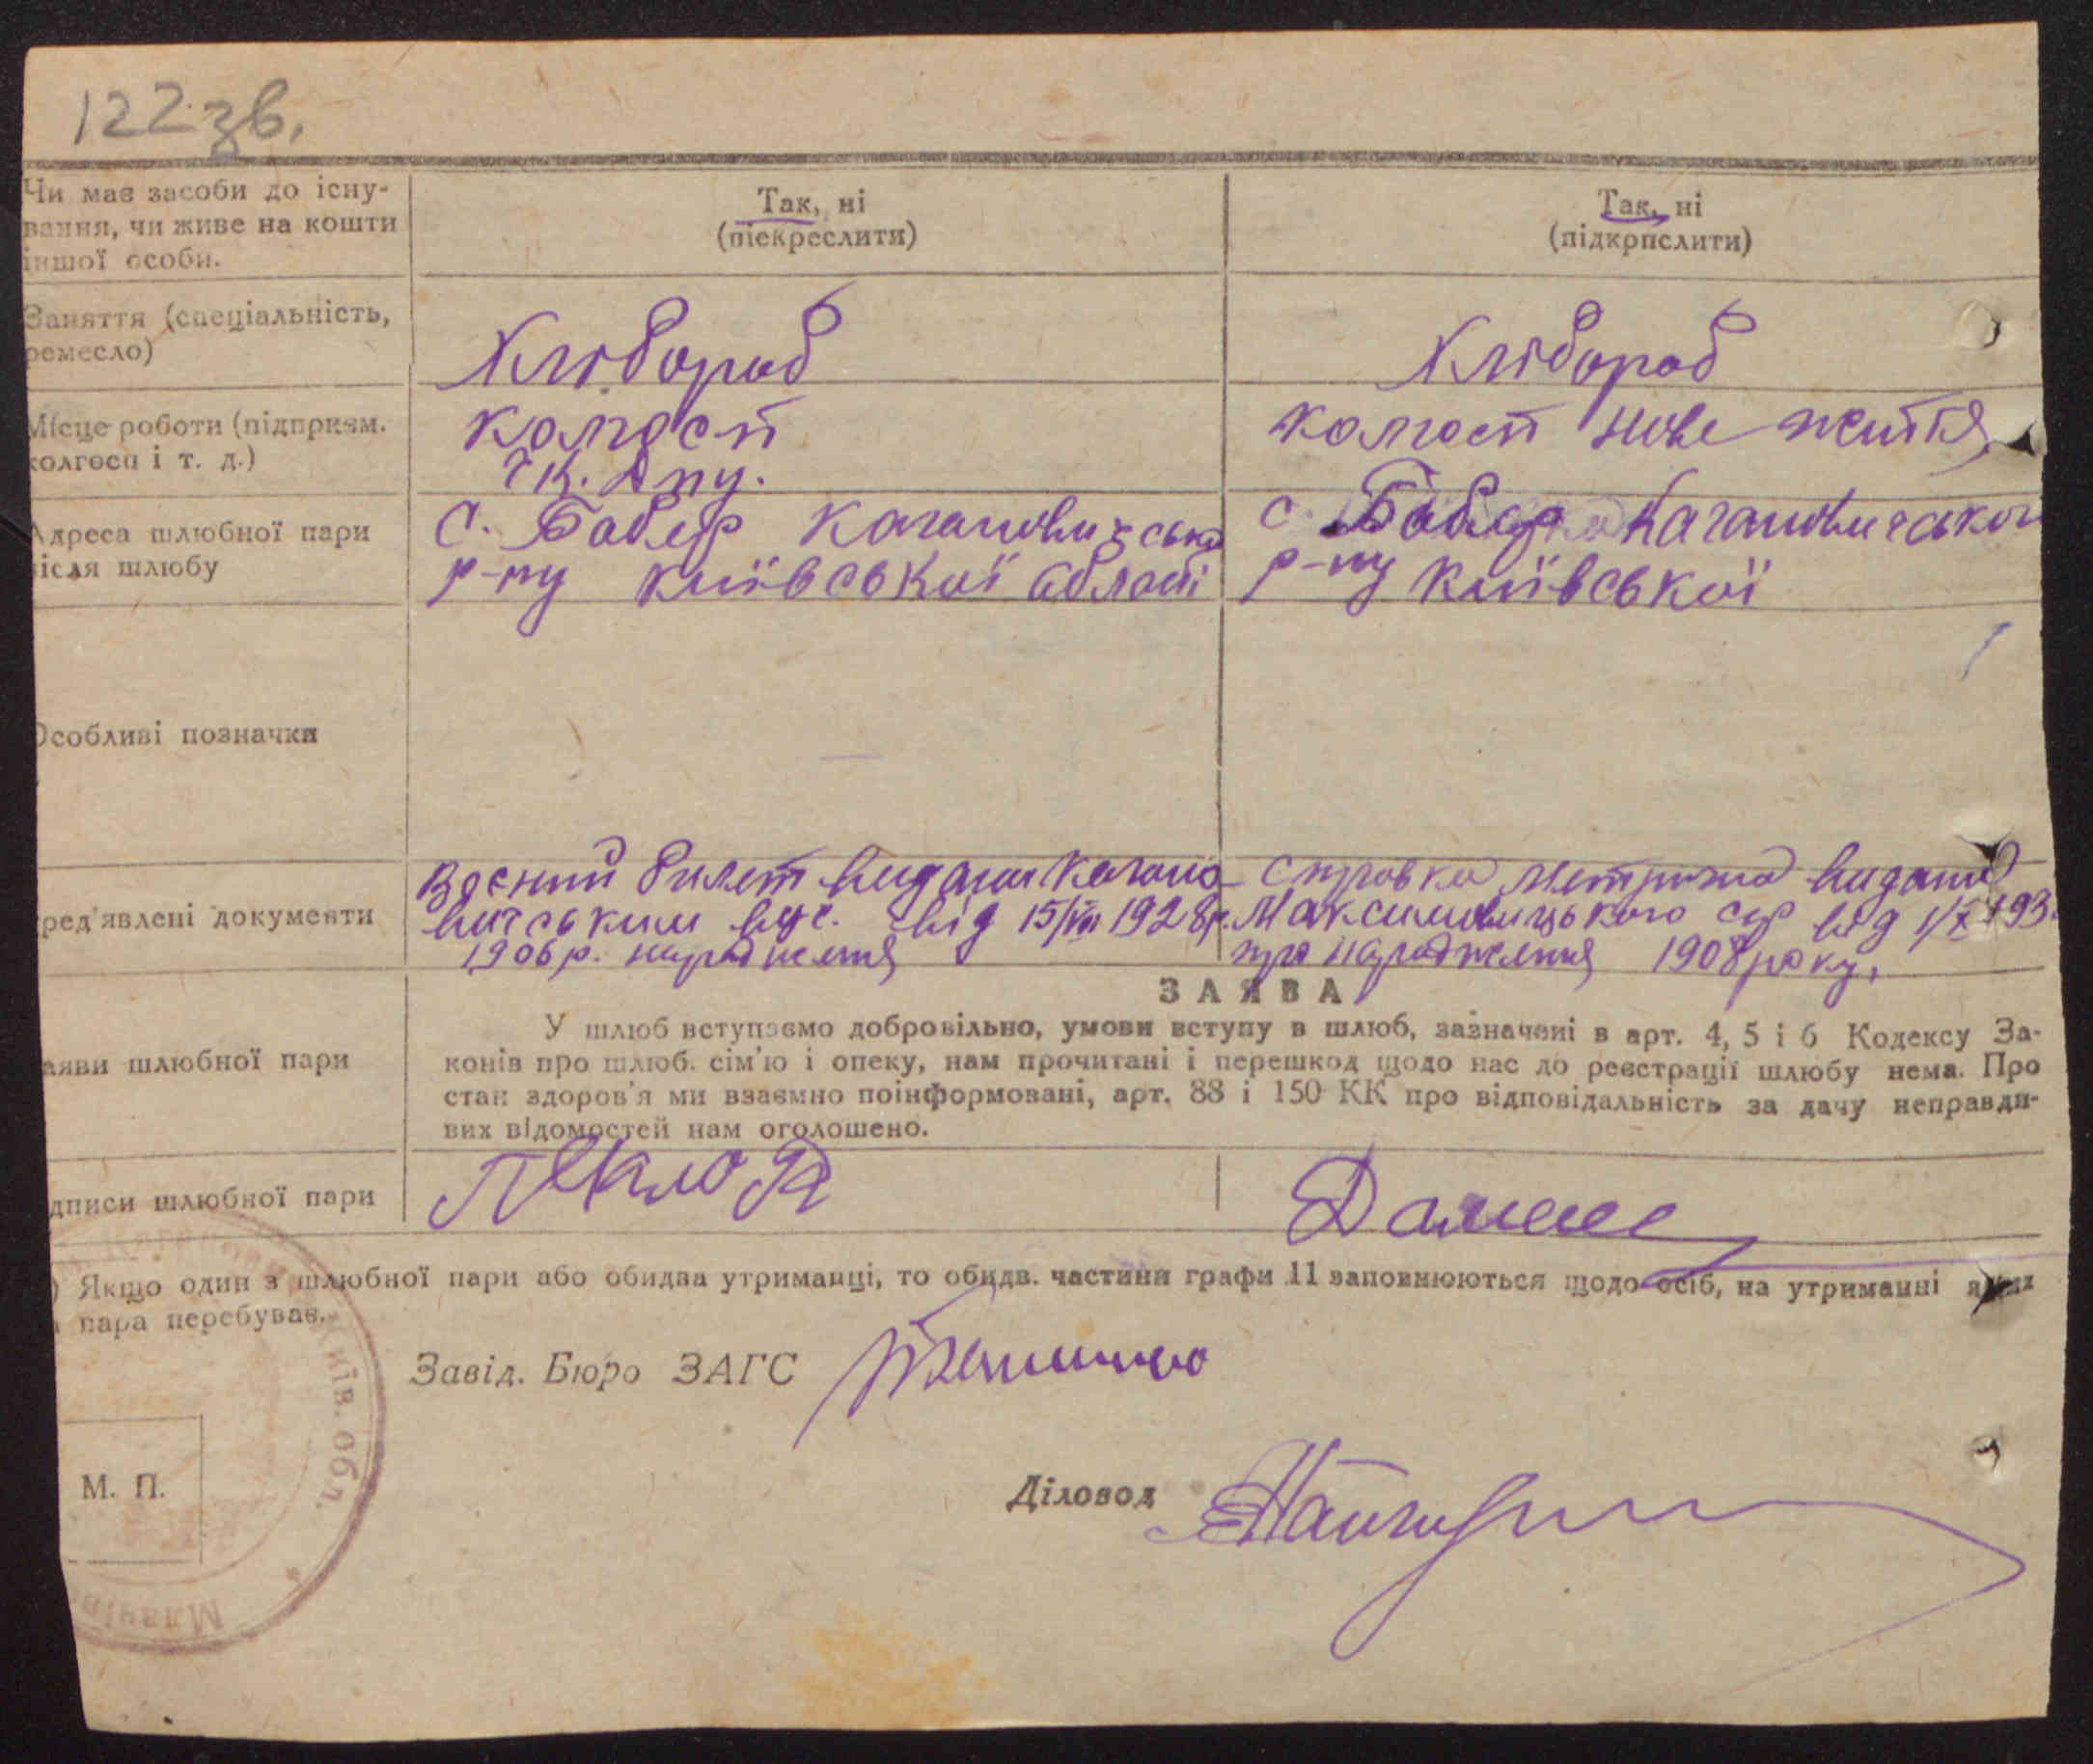 122 зв.
Чи має засоби до існу-
вання, чи живе на кошти
іншої особи.
Так, ні
(піекреслити)
Так, ні
(підкрпслити)
Заняття (спеціальність,
ремесло)
Хлібороб
Хлібороб
Місце роботи (підприєм.
колгосп і т. д.)
колгосп
колгосп Нове життя
Адреса шлюбної пари
після шлюбу
с. Бобер Кагановичсько
р-ну Київської області
с. Бобер Кагановичсько
р-ну Київської
Особливі позначки
ред'явлені документи
Воєний билет виданий Кагано-
вичським від 15/VII 1928р.
1906 р. народження
Справка метрична видана
Максимовицького с/р від 1/X 193
про народження 1908 року.
аяви шлюбної пари
ЗАЯВА
У шлюб вступаємо добровільно, умови вступу в шлюб, зазначені в арт. 4, 5 і 6 Кодексу За-
конів про шлюб. сім'ю і опеку, нам прочитані і перешкод щодо нас до реєстрації шлюбу нема. Про
стан здоров'я ми взаємно поінформовані, арт. 88 і 150 КК про відповідальність за дачу неправди-
вих відомостей нам оголошено.
дписи шлюбної пари
) Якщо один з шлюбної пари або обидва утриманці, то обидв. частини графи 11 заповнюються щодо осіб, на утриманні яких
пара перебуває.
Завід. Бюро ЗАГС
Діловод
М. П.
Київ. обл.